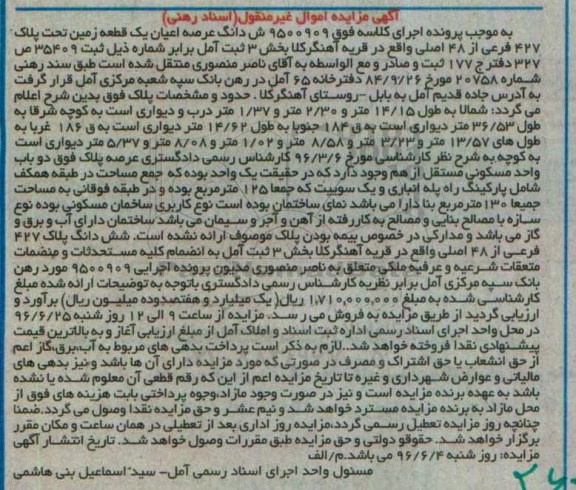 آگهی مزایده اموال غیرمنقول(اسناد رهنی)
به موجب پرونده اجرای کلاسه فوق ۹۵۰۰۹۰۹ ش دانگ عرصه اعیان یک قطعه زمین تحت پلاک
۴۲۷ فرعی از ۴۸ اصلی واقع در قریه آهنگرکلا بخش ۳ ثبت آمل برابر شماره ذیل ثبت ۳۵۴۰۹ ص
۳۲۷ دفترج ۱۷۷ ثبت و صادر و مع الواسطه به آقای ناصر منصوری منتقل شده است طبق سند رهنی
شماره ۲۰۷۵۸ مورخ ۸۴/۹/۲۶ دفترخانه ۶۵ آمل در رهن بانک سپه شعبه مرکزی آمل قرار گرفت
به آدرس جاده قدیم آمل به بابل -روستای آهنگرکلا . حدود و مشخصات پلاک فوق بدین شرح اعلام
می گردد: شمالا به طول ۱۴/۱۵ متر و ۲/۳۰ متر و ۱/۳۷ متر درب و دیواری است به کوچه شرقا به
طول ۳۶/۵۳ متر دیواری است به ق ۱۸۴ جنوبا به طول ۱۴/۶۲ متر دیواری است به ق ۱۸۶ غربا به
طول های ۱۳/۵۷ متر و ۳/۲۳ متر و ۸/۵۸ متر و ۱/۰۲ متر و ۸/۰۸ متر و ۵/۳۷ متر دیواری است
به کوچه.به شرح نظر کارشناسی مورخ ۹۶/۳/۶ کارشناس رسمی دادگستری عرصه پلاک فوق دو باب
واحد مسکونی مستقل از هم وجود دارد که در حقیقت یک واحد بوده که جمع مساحت در طبقه همکف
شامل پارکینگ راه پله انباری و یک سوییت که جمعا ۱۲۵ مترمربع بوده و در طبقه فوقانی به مساحت
جمیعا ۱۳۰مترمربع بنا دارا می باشد نمای ساختمان بوده است نوع کاربری ساختمان مسکونی بوده نوع
سازه با مصالح بنایی و مصالح به کاررفته از آهن و آجر و سیمان می باشد ساختمان دارای آب و برق و
گاز می باشد و مدارکی در خصوص بیمه بودن پلاک موصوف ارائه نشده است. شش دانگ پلاک ۴۲۷
فرعی از ۴۸ اصلی واقع در قریه آهنگرکلا بخش ۳ ثبت آمل به انضمام کلیه مستحدثات و منضمات
متعقات شرعیه و عرفیه ملکی متعلق به ناصر منصوری مدیون پرونده اجرایی ۹۵۰۰۹۰۹ مورد رهن
بانک سپه مرکزی آمل برابر نظریه کارشناس رسمی دادگستری باتوجه به توضیحات ارائه شده مبلغ
کارشناسی شده به مبلغ ۱,۷۱۰,۰۰۰,۰۰۰ ریال( یک میلیارد و هفتصدوده میلیون ریال) برآورد و
ارزیابی گردید از طریق مزایده به فروش می رسد. مزایده از ساعت ۹ الی ۱۲ روز شنبه ۹۶/۶/۲۵
در محل واحد اجرای اسناد رسمی اداره ثبت اسناد و املاک آمل از مبلغ ارزیابی آغاز و به بالاترین قیمت
پیشنهادی نقدا فروخته خواهد شد..لازم به ذکر است پرداخت بدهی های مربوط به آب،برق،گاز اعم
از حق انشعاب یا حق اشتراک و مصرف در صورتی که مورد مزایده دارای آن ها باشد و نیز بدهی های
مالیاتی و عوارض شهرداری و غیره تا تاریخ مزایده اعم از این که رقم قطعی آن معلوم شده یا نشده
باشد به عهده برنده مزایده است و نیز در صورت وجود مازاد،وجوه پرداختی بابت هزینه های فوق از
محل مازاد به برنده مزایده مسترد خواهد شد و نیم عشر و حق مزایده نقدا وصول می گردد.ضمنا
چنانچه روز مزایده تعطیل رسمی گردد،مزایده روز اداری بعد از تعطیلی در همان ساعت و مکان مقرر
برگزار خواهد شد. حقوقو دولتی و حق مزایده طبق مقررات وصول خواهد شد. تاریخ انتشار آگهی
مزایده: روز شنبه ۹۶/۶/۴ می باشد.م/الف
مسئول واحد اجرای اسناد رسمی آمل- سید اسماعیل بنی هاشمی